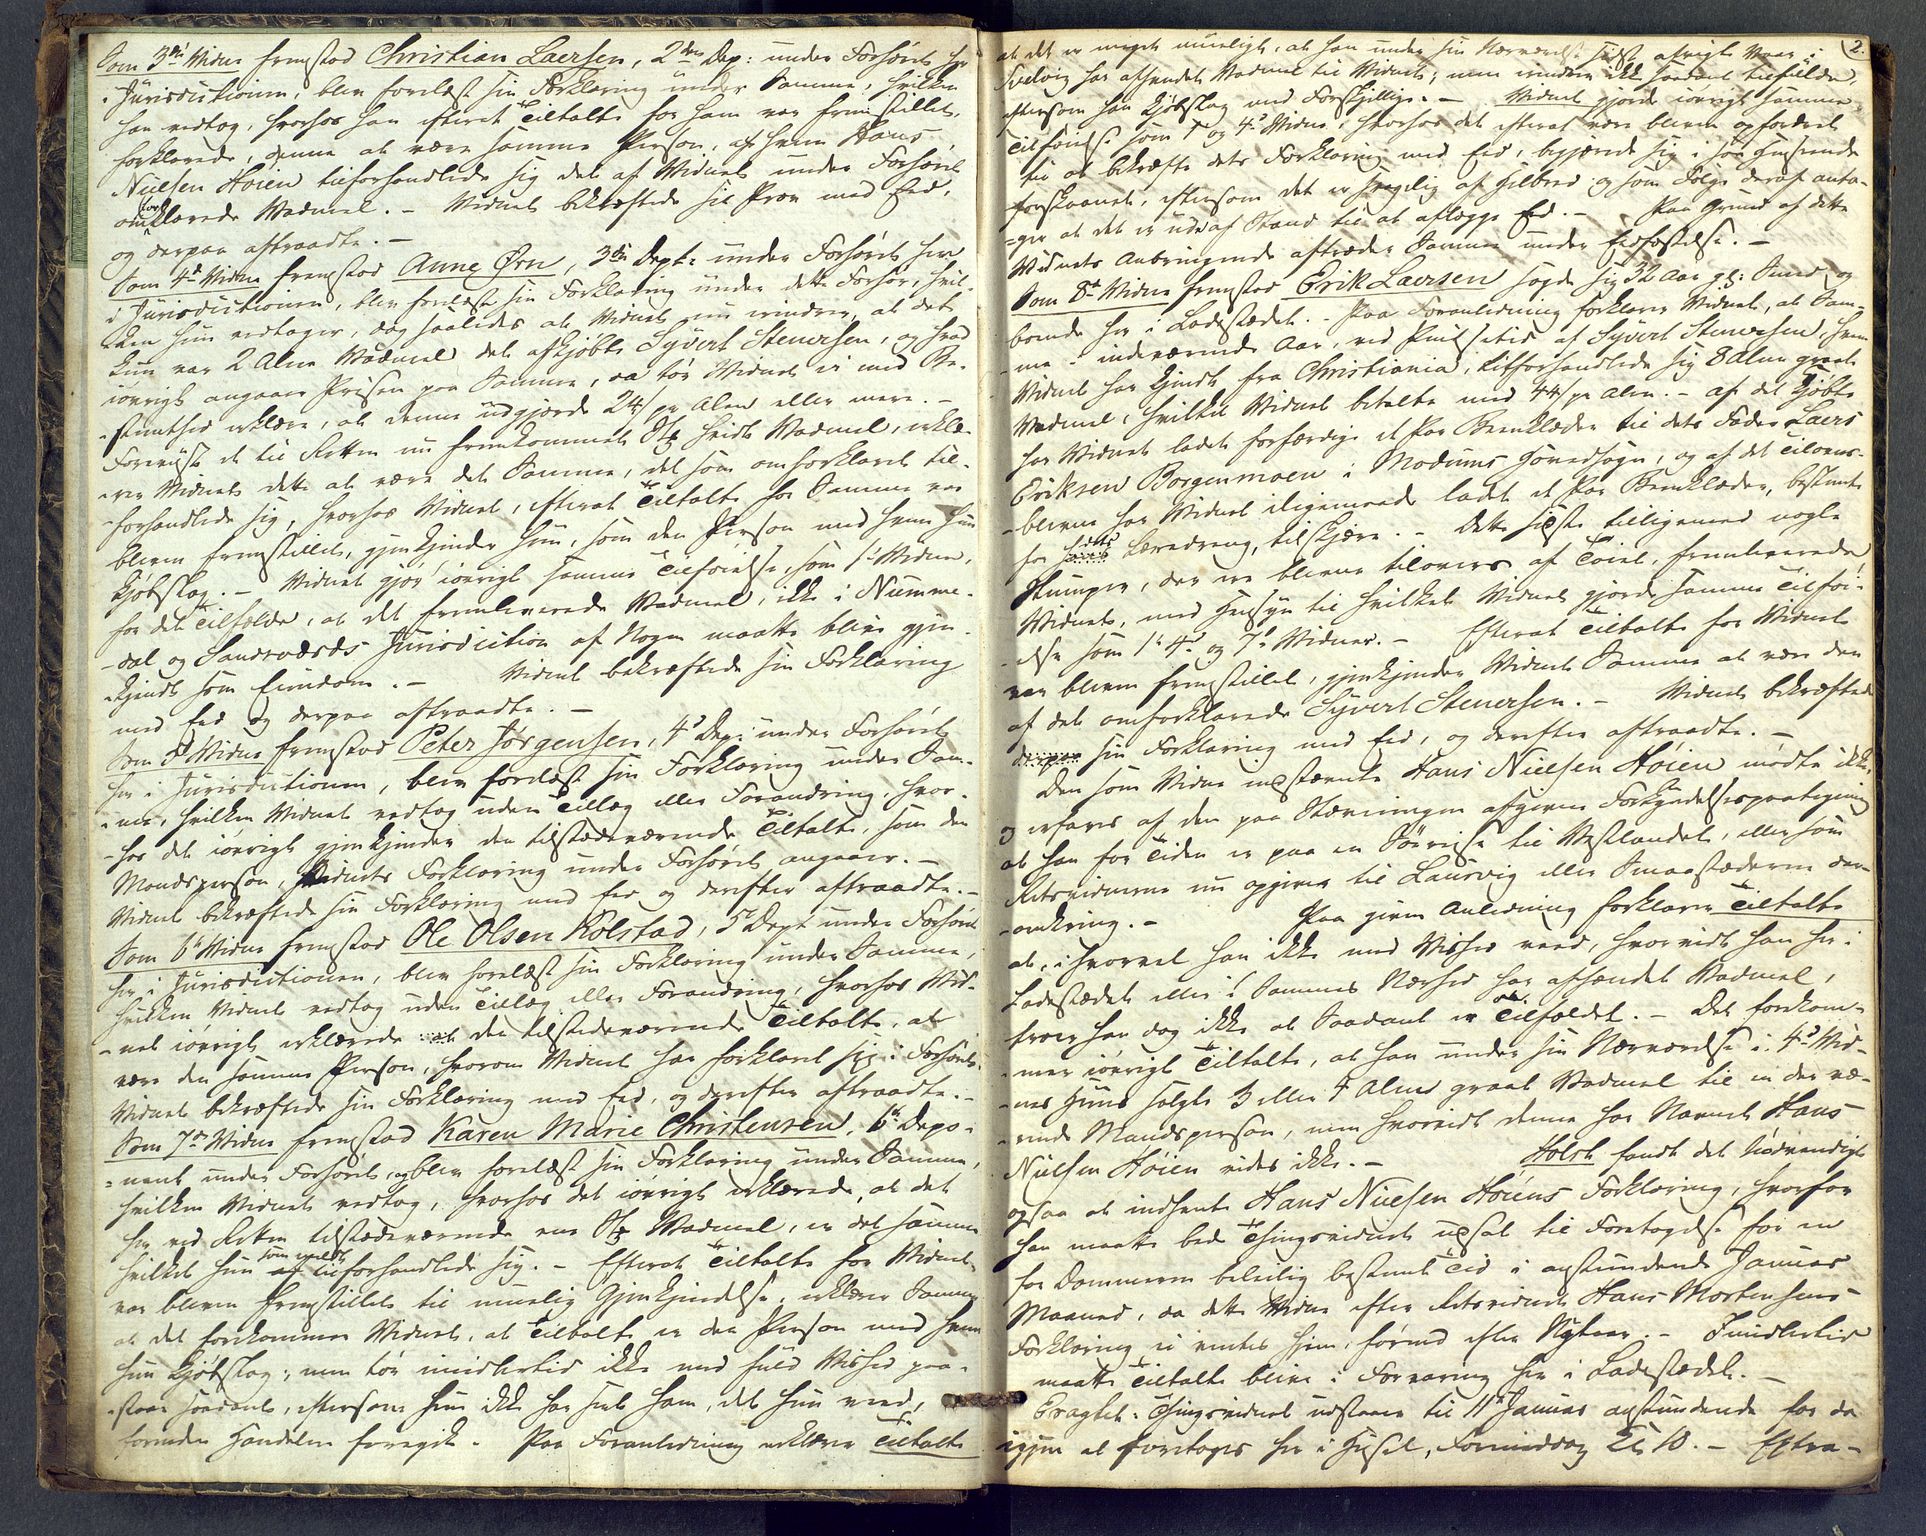 Som 3die Vidne fremstod Christian Laersen, 2den Dep: under Forhøret her
i Jurisdictionen, blev forelæst sin Forklaring under Samme, hvilken
han vedtog, hvorhos han efterat Tiltalte for ham var fremstillet,
forklarede, denne at være samme Person, af hvem Hans
Nielsen Höien tilforhandlede sig det af Vidnet under Forhöret
omforklarede Vadmel. – Vidnet bekræftede sit Prov med Eed,
og derpaa aftraadte. –
Som 4de Vidne fremstod Anne Örn, 3die Dept: under Forhöret her
i Jurisdictionen, blev forelæst sin Forklaring under dette Forhör, hvil-
-ken hun vedtager, dog saaledes at Vidnet nu erindrer, at det
kun var 2 Alen Vadmel det afkjøbte Syvert Stenersen, og hvad
iövrigt angaaer Prisen paa Samme, da tör Vidnet ei med Be-
-stemthed erklære, at denne udgjorde 24 s pr Alen eller mere. –
Foreviist et til Retten nu fremkommet Stk hvidt Vadmel, erklæ-
-rer Vidnet dette at være det Samme, det som omforklaret til-
-forhandlede sig, hvorhos Vidnet, efterat Tiltalte for Samme var
bleven fremstillet, gjenkjender ham, som den Person med hvem hun
kjøbslog. – Vidnet gjör iövrigt samme Tilföielse, som 1ste Vidne,
for det Tilfælde, at det fremleverede Vadmel, ikke i Numme-
-dal og Sandsværds Jurisdiction af Nogen maatte blive gjen-
-kjendt som Eiendom. – Vidnet bekræftede sin Forklaring
med Eed og derpaa aftraadte. –
Som 5te Vidne fremstod Peter Jørgensen, 4de Dep: under Forhöret
her i Jurisdictionen, blev forelæst sin Forklaring under Sam-
-me, hvilken Vidnet vedtog uden Tillæg eller Forandring, hvor-
-hos det iövrigt gjenkjender den tilstedeværende Tiltalte, som den
Mandsperson, Vidnets Forklaring under Forhöret angaaer. –
Vidnet bekræftede sin Forklaring med Eed og derefter aftraadte. –
Som 6te Vidne fremstod Ole Olsen Kolstad, 5te Dept under Forhöret
her i Jurisdictionen, blev forelæst sin Forklaring under Samme,
hvilken Vidnet vedtog uden Tillæg eller Forandring, hvorhos Vid-
-net iövrigt erklærede den tilstedeværende Tiltalte, at
være den samme Person, hvorom Vidnet har forklaret sig i Forhöret.
Vidnet bekræftede sin Forklaring med Eed, og derefter aftraadte. –
Som 7de Vidne fremstod Karen Marie Christensen, 6te Depo-
-nent under Forhöret, og blev forelæst sin Forklaring under Samme,
hvilken Vidnet vedtog, hvorhos det iövrigt erklærede, at det
her ved Retten tilstedeværende ene Stk Vadmel, er det samme
hvilket hun som meldt tilforhandlede sig. – Efterat Tiltalte for Vidnet
var bleven fremstillet til muelig Gjenkjendelse, erklærer Samme
at det forekommer Vidnet, at Tiltalte er den Person med hvem
hun kjøbslog; men tör imidlertid ikke med fuld Vished paa-
-staae saadant, eftersom hun ikke har seet ham, det hun veed,
forinden Handelen foregik. – Paa Foranledning erklærer Tiltalte
2.
at det er meget mueligt, at han under sin Nærværelse sidst afvigte Vaar i
Svelvig har afhændet Vadmel til Vidnet; men erindrer ikke saadant tilfulde,
eftersom han kjøbslog med Forskjellige. – Vidnet gjorde iövrigt samme
Tilföielse som 1ste og 4de Vidne, hvorhos det efterat være bleven opfordret
til at bekræfte dets Forklaring med Eed, begjærede sig i saa Henseende
forskaanet, eftersom det er svagelig af Helbred og som Fölge deraf anta-
-ger at det er ude af Stand til at aflægge Eed. – Paa Grund af dette
Vidnets Anbringende aftræder Samme under Eedfæstelse. –
Som 8de Vidne fremstod Erik Laersen sagde sig 32 Aar gl: Smed og
boende her i Ladestædet. – Paa Foranledning forklarer Vidnet, at Sam-
-me i indeværende Aar, ved Pintsetid af Syvert Stenersen, hvem
Vidnet har kjendt fra Christiania, tilforhandlede sig 8 Alen graat
Vadmel, hvilket Vidnet betalte med 44 s pr Alen. – Af det Kjøbte
har Vidnet ladet forfærdige et Par Beenklæder til dets Fader Laers
Eriksen Borgenmoen i Modums Hovedsogn, og af det Tilovers-
-blevne har Vidnet iligemaade ladet et Par Beenklæder, bestemt
for dets Læredreng, tilskjære. – Dette sidste tilligemed nogle
Stumper, der ere blevne tilovers af Töiet, fremleverede
Vidnet, med Hensyn til hvilket Vidnet gjorde samme Tilföi-
-else som 1ste 4de og 7de Vidner. – Efterat Tiltalte for Vidnet
var bleven fremstillet, gjenkjender Vidnet Samme at være den
af det omforklarede Syvert Stenersen. – Vidnet bekræftede
derpaa sin Forklaring med Eed, og derefter aftraadte. –
Den som Vidne indstævnte Hans Nielsen Höien mødte ikke,
og erfares af den paa Stævningen afgivne Forkyndelsespaategning
at han for Tiden er paa en Söereise til Vestlandet, eller som
Retsvidnerne nu opgiver til Laurvig eller Smaastæderne der-
-omkring. – Paa given Anledning forklarer Tiltalte
at, ihvorvel han ikke med Vished veed, hvorvidt han her i
Ladestædet eller i Sammes Nærhed har afhændet Vadmel,
troer han dog ikke at Saadant er Tilfældet. – Det forekom-
-mer iövrigt Tiltalte, at han under sin Nærværelse i 4de Vid-
-nes Huus solgte 3 eller 4 Alen graat Vadmel til en der væ-
-rende Mandsperson, men hvorvidt denne har Navnet Hans
Nielsen Höien vides ikke. – Holst fandt det nödvendigt
ogsaa at indhente Hans Nielsen Höiens Forklaring, hvorfor
han maatte bede Thingsvidnet udsat til Foretagelse for en
for Dommeren beleilig bestemt Tid i anstundende Januar
Maaned, da dette Vidne efter Retsvidnet Hans Mortensens
Forklaring ei ventes hjem, förend efter Nytaar. – Imidlertid
maatte Tiltalte blive i Forvaring her i Ladestædet. –
Eragtet: Thingsvidnet udstaaer til 11te Januar anstundende for da
igjen at foretages her i Huset, Formiddag Kl. 10. – Extra-